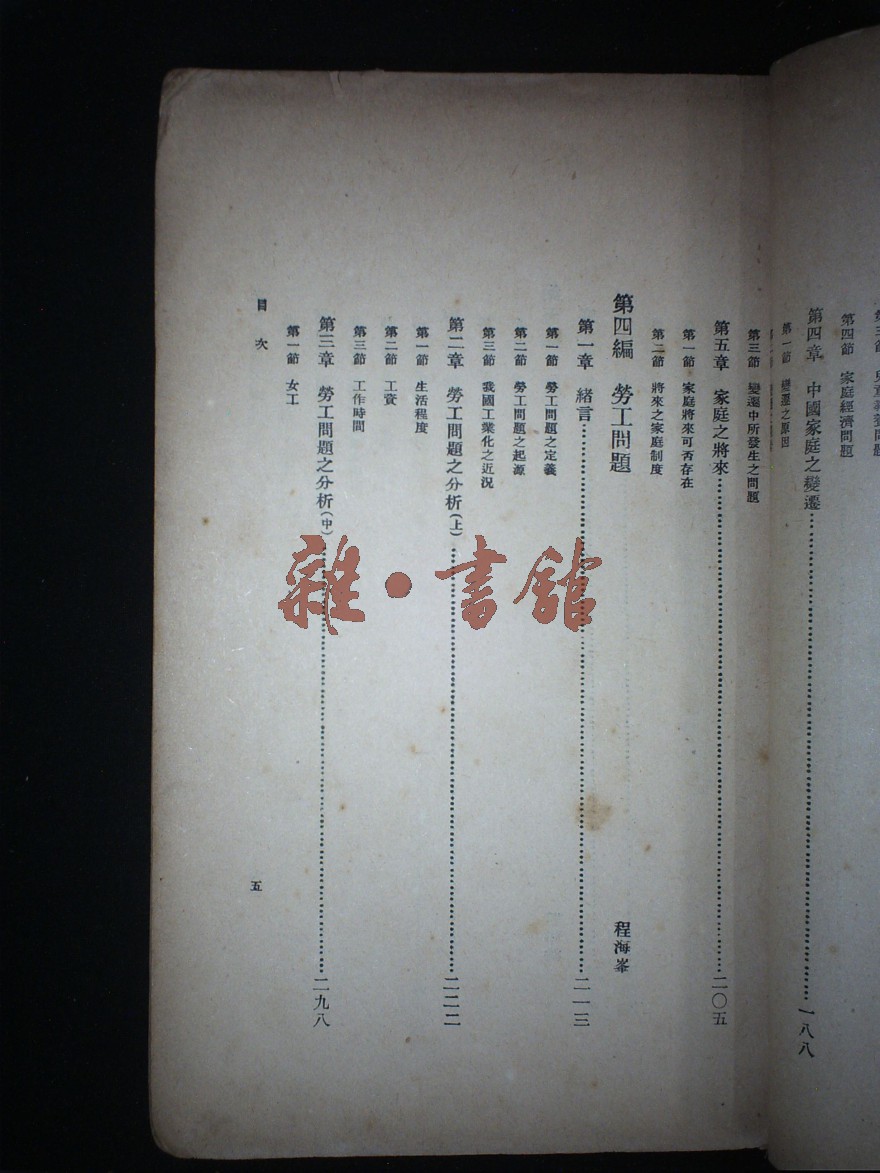 第四節　家庭經濟問題
第四章　中國家庭之變遷……一八八
第一節　變遷之原因
第三節　變遷中所發生之問題
第五章　家庭之將來……二〇五
第一節　家庭將來可否存在
第二節　將來之家庭制度
第四編　勞工問題　程海峯
第一章　緒言……二一三
第一節　勞工問題之定義
第二節　勞工問題之起源
第三節　我國工業化之近況
第二章　勞工問題之分析(上)……二二二
第一節　生活程度
第二節　工資
第三節　工作時間
第三章　勞工問題之分析(中)……二九八
第一節　女工
目次　五
雜·書館